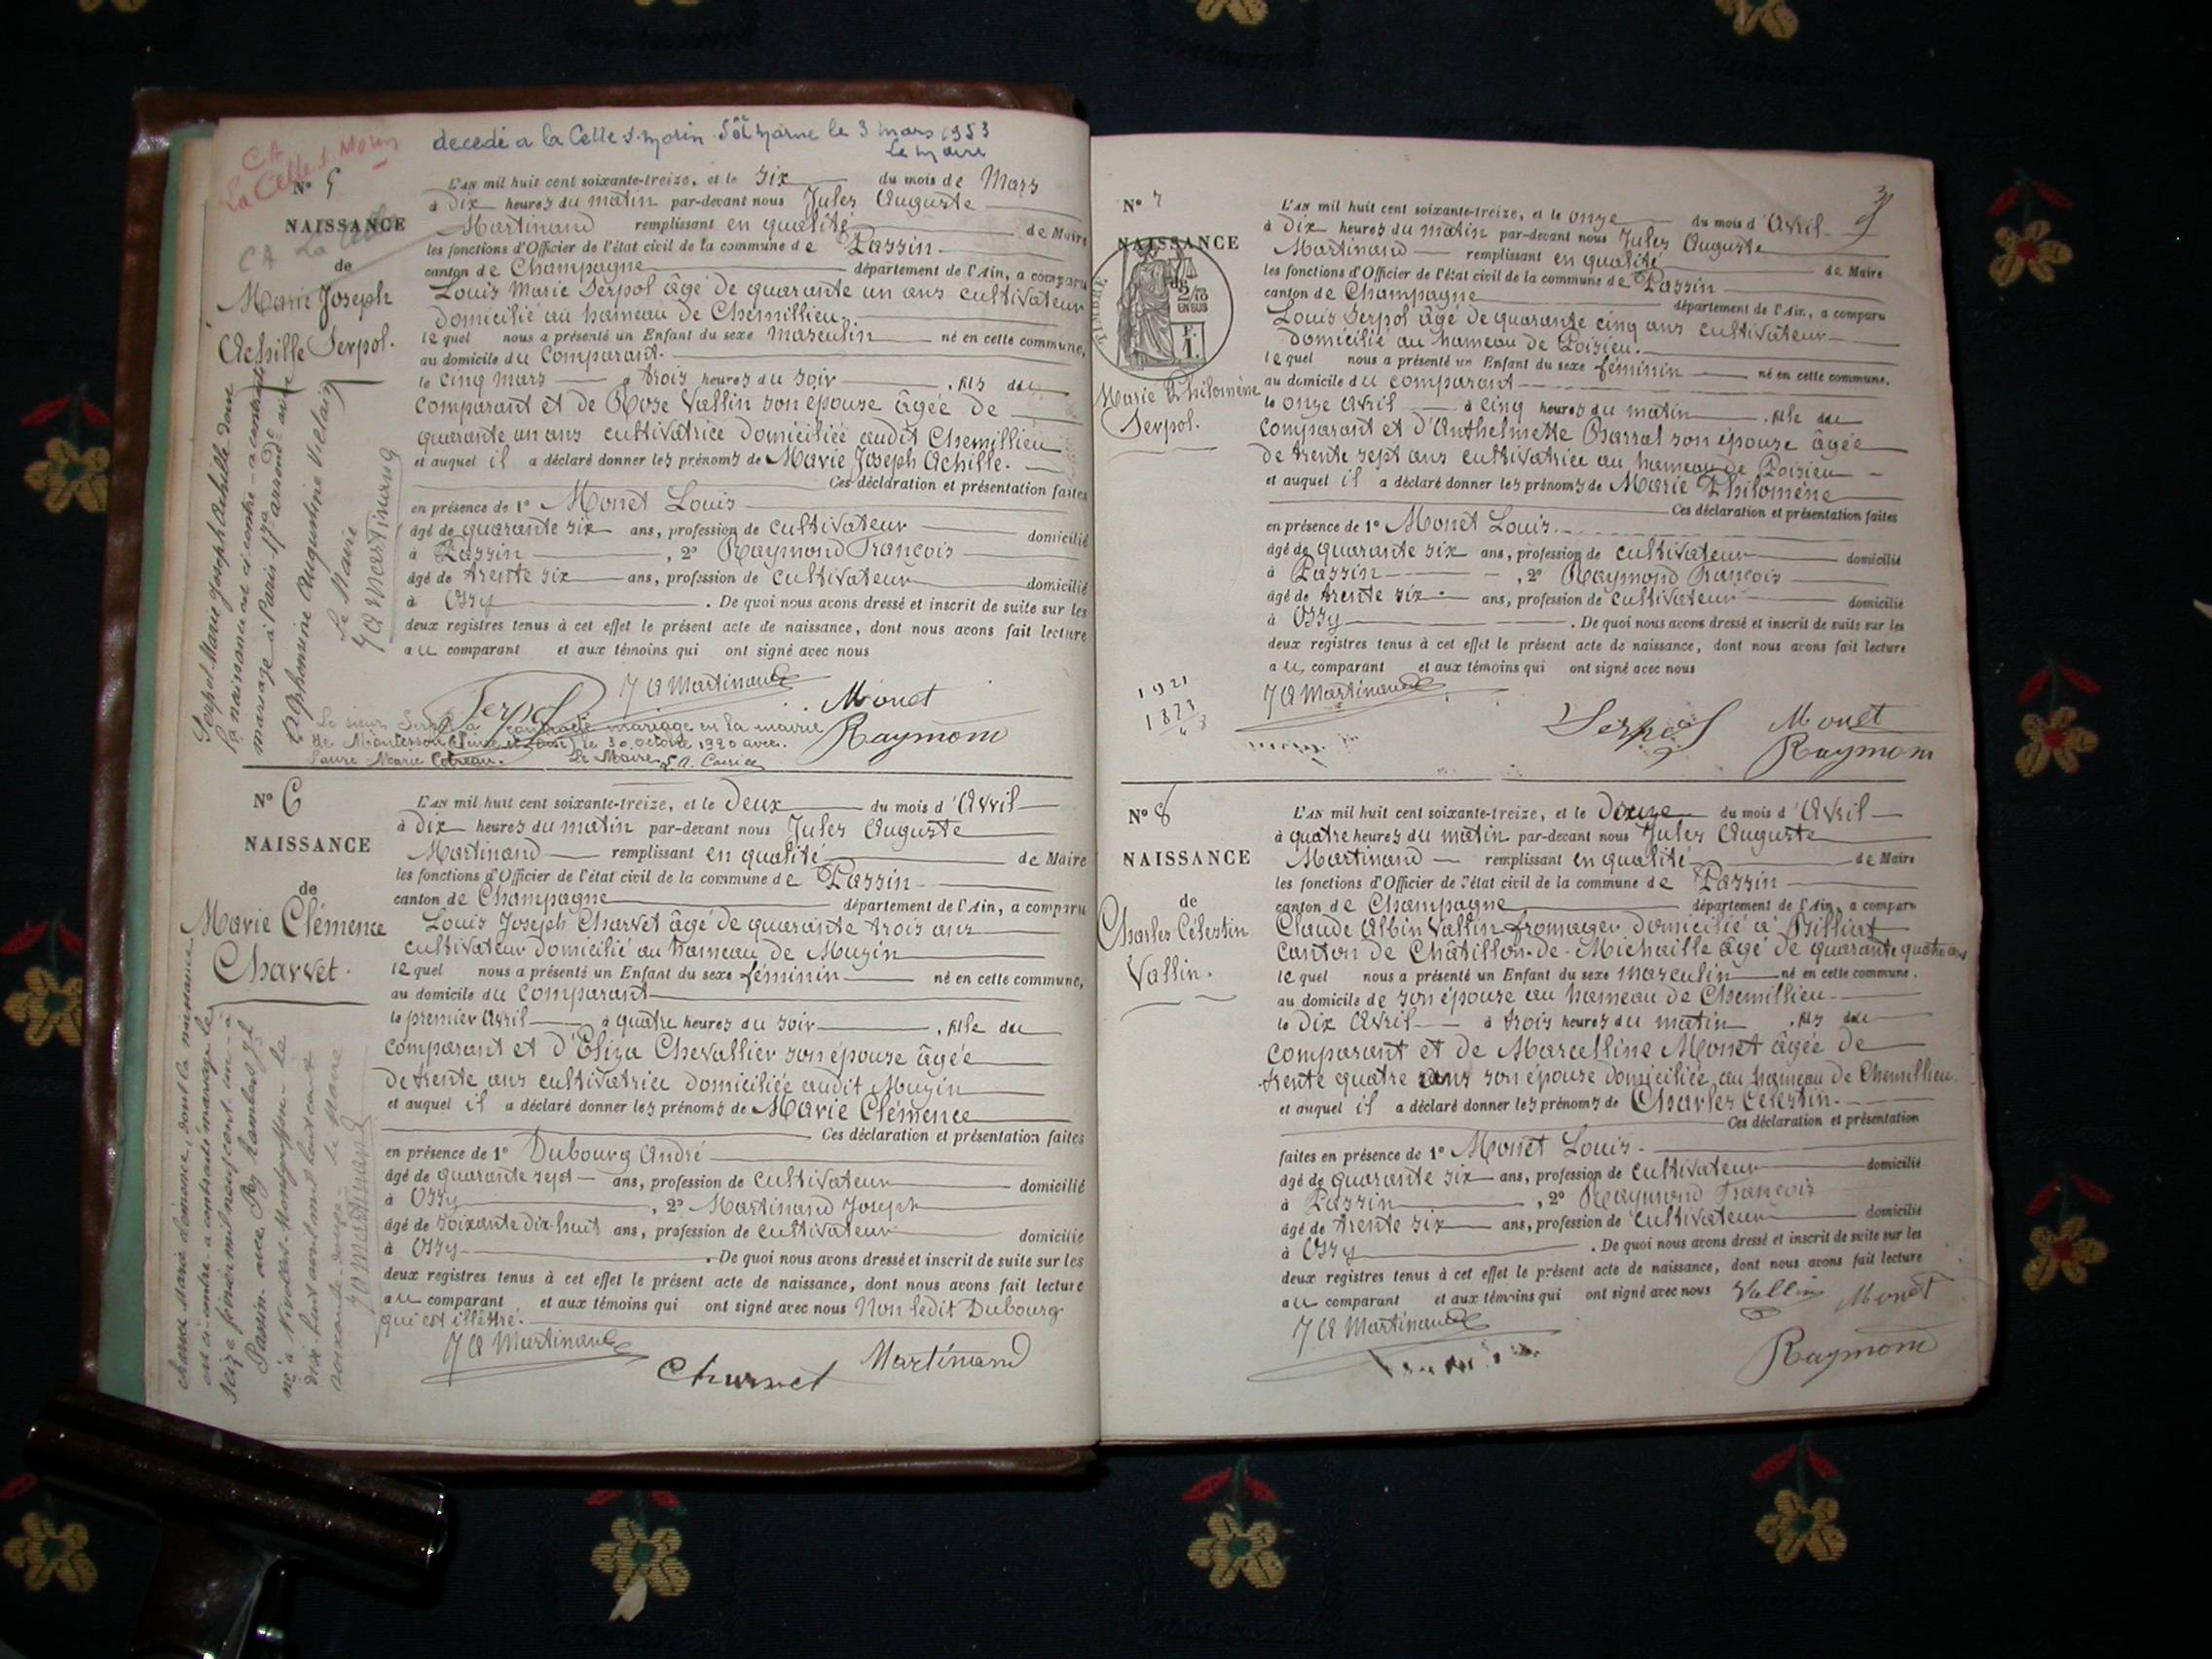 decedé a la Celle s. morin Sne et Marne le 3 mars 1953
Le Maire
CA
La Celle s. Morin
N° 5
NAISSANCE
CA La Celle
de
Marie Joseph
Achille Serpol.
L'AN mil huit cent soixante-treize, et le six du mois de Mars
à dix heures du matin par-devant nous Jules Auguste
Martinand remplissant en qualité de Maire
les fonctions d'Officier de l'état civil de la commune de Passin
canton de Champagne département de l'Ain, a comparu
Louis Marie Serpol âgé de quarante un ans cultivateur
domicilié au hameau de Chemillieu.
lequel nous a présenté un Enfant du sexe masculin né en cette commune,
au domicile du comparant.
le cinq mars à trois heures du soir, fils du
comparant et de Rose Vallin son épouse âgée de
quarante un ans cultivatrice domiciliée audit Chemillieu
et auquel il a déclaré donner les prénoms de Marie Joseph Achille.
Ces déclaration et présentation faites
en présence de 1° Monet Louis
âgé de quarante six ans, profession de cultivateur domicilié
à Passin, 2° Raymond François
âgé de trente six ans, profession de cultivateur domicilié
à Ossy. De quoi nous avons dressé et inscrit de suite sur les
deux registres tenus à cet effet le présent acte de naissance, dont nous avons fait lecture
au comparant et aux témoins qui ont signé avec nous
J A Martinand
Serpol
Monet
Raymond
Le sieur Serpol a contracté mariage en la mairie
de Montesson (Seine et Oise) le 30 octobre 1920 avec
Le Maire
Serpol Marie Joseph Achille dont
la naissance est ci contre a contracté
mariage à Paris 17e arrond. avec
Alphonsine Augustine Velain
Le Maire
J A Martinand
N° 6
NAISSANCE
de
Marie Clémence
Charvet.
L'AN mil huit cent soixante-treize, et le deux du mois d'Avril
à dix heures du matin par-devant nous Jules Auguste
Martinand remplissant en qualité de Maire
les fonctions d'Officier de l'état civil de la commune de Passin
canton de Champagne département de l'Ain, a comparu
Louis Joseph Charvet âgé de quarante trois ans
cultivateur domicilié au hameau de Muzin
lequel nous a présenté un Enfant du sexe féminin né en cette commune,
au domicile du comparant
le premier Avril à quatre heures du soir, fille du
comparant et d'Eliza Chevallier son épouse âgée
de trente ans cultivatrice domiciliée audit Muzin
et auquel il a déclaré donner les prénoms de Marie Clémence
Ces déclaration et présentation faites
en présence de 1° Dubourg André
âgé de quarante sept ans, profession de cultivateur domicilié
à Ossy, 2° Martinand Joseph
âgé de soixante dix-huit ans, profession de cultivateur domicilié
à Ossy. De quoi nous avons dressé et inscrit de suite sur les
deux registres tenus à cet effet le présent acte de naissance, dont nous avons fait lecture
au comparant et aux témoins qui ont signé avec nous Non ledit Dubourg
qui est illétré.
J A Martinand
Charvet
Martinand
Charvet Marie Clémence, dont la naissance
est ci-contre a contracté mariage le
seize février mil neuf cent un à
Passin avec Rambert
né à Nivollet-Montgriffon le
dix huit avril mil huit cent
soixante douze Le Maire
J A Martinand
3
N° 7
NAISSANCE
TIMBRE
2/10
EN SUS
F.
1.
Marie Philomène
Serpol.
L'AN mil huit cent soixante-treize, et le onze du mois d'Avril
à dix heures du matin par-devant nous Jules Auguste
Martinand remplissant en qualité de Maire
les fonctions d'Officier de l'état civil de la commune de Passin
canton de Champagne département de l'Ain, a comparu
Louis Serpol âgé de quarante cinq ans cultivateur
domicilié au hameau de Poisieu.
lequel nous a présenté un Enfant du sexe féminin né en cette commune.
au domicile du comparant
le onze Avril à cinq heures du matin, fille du
comparant et d'Anthelmette Barral son épouse âgée
de trente sept ans cultivatrice au hameau de Poisieu
et auquel il a déclaré donner les prénoms de Marie Philomène
Ces déclaration et présentation faites
en présence de 1° Monet Louis.
âgé de quarante six ans, profession de cultivateur domicilié
à Passin, 2° Raymond François
âgé de trente six ans, profession de cultivateur domicilié
à Ossy. De quoi nous avons dressé et inscrit de suite sur les
deux registres tenus à cet effet le présent acte de naissance, dont nous avons fait lecture
au comparant et aux témoins qui ont signé avec nous
1921
1873
J A Martinand
Serpol
Monet
Raymond
N° 8
NAISSANCE
de
Charles Célestin
Vallin.
L'AN mil huit cent soixante-treize, et le douze du mois d'Avril
à quatre heures du matin par-devant nous Jules Auguste
Martinand remplissant en qualité de Maire
les fonctions d'Officier de l'état civil de la commune de Passin
canton de Champagne département de l'Ain, a comparu
Claude Albin Vallin fromager domicilié à Billiat
Canton de Châtillon-de-Michaille âgé de quarante quatre ans
lequel nous a présenté un Enfant du sexe masculin né en cette commune.
au domicile de son épouse au hameau de Chemillieu
le dix Avril à trois heures du matin, fils du
comparant et de Marcelline Monet âgée de
trente quatre ans son épouse domiciliée au hameau de Chemillieu.
et auquel il a déclaré donner les prénoms de Charles Célestin.
Ces déclaration et présentation
faites en présence de 1° Monet Louis.
âgé de quarante six ans, profession de cultivateur domicilié
à Passin, 2° Raymond François
âgé de trente six ans, profession de cultivateur domicilié
à Ossy. De quoi nous avons dressé et inscrit de suite sur les
deux registres tenus à cet effet le présent acte de naissance, dont nous avons fait lecture
au comparant et aux témoins qui ont signé avec nous Vallin Monet
J A Martinand
Raymond